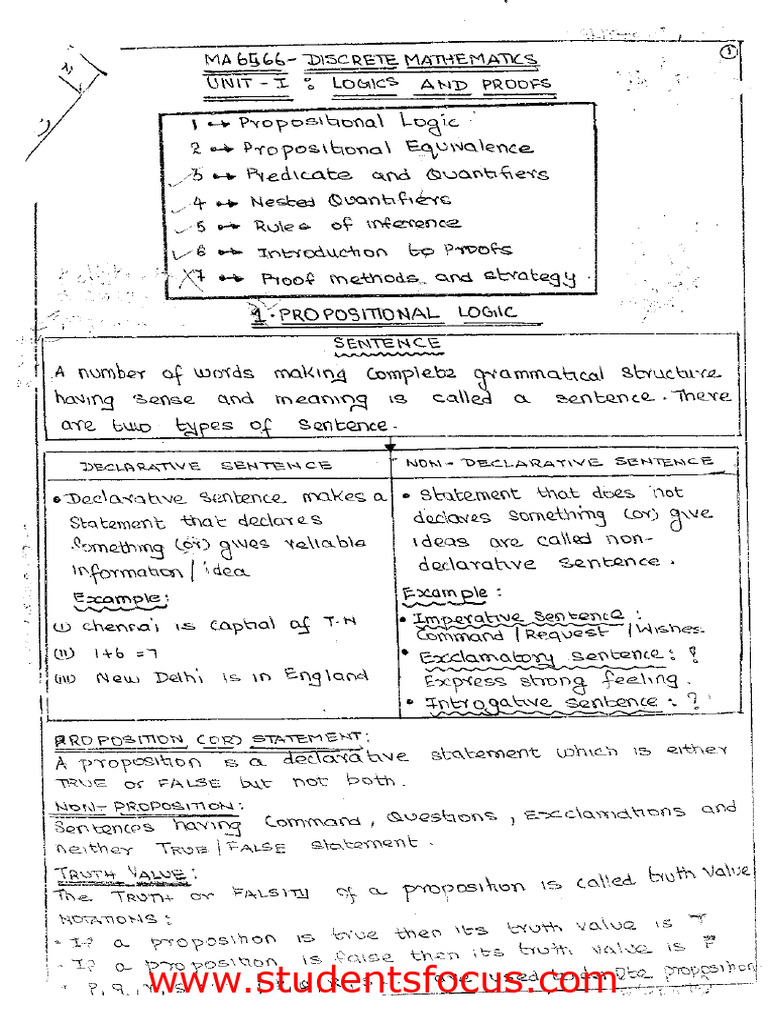 1
MA6566 - DISCRETE MATHEMATICS
UNIT - I : LOGICS AND PROOFS
1 → Propositional Logic
2 → Propositional Equivalence
3 → Predicate and Quantifiers
4 → Nested Quantifiers
5 → Rules of inference
6 → Introduction to Proofs
7 → Proof methods and strategy.
1. PROPOSITIONAL LOGIC
SENTENCE
A number of words making complete grammatical structure
having sense and meaning is called a sentence. There
are two types of sentence.
DECLARATIVE SENTENCE
• Declarative sentence makes a
statement that declares
something (or) gives reliable
information / idea
Example:
(i) Chennai is captial of T.N
(ii) 1+6 =7
(iii) New Delhi is in England
NON-DECLARATIVE SENTENCE
• Statement that does not
declares something (or) give
ideas are called non-
declarative sentence.
Example:
• Imperative Sentence:
Command / Request / Wishes.
• Exclamatory sentence: !
Express strong feeling.
• Introgative sentence: ?
PROPOSITION (OR) STATEMENT:
A proposition is a declarative statement which is either
TRUE or FALSE but not both.
NON-PROPOSITION:
Sentences having Command, Questions, Exclamations and
neither TRUE / FALSE statement.
TRUTH VALUE:
The TRUTH or FALSITY of a proposition is called truth value
NOTATIONS:
• If a proposition is true then its truth value is T
• If a proposition is false then its truth value is F
• P, q, r, s are used to proposition
www.studentsfocus.com